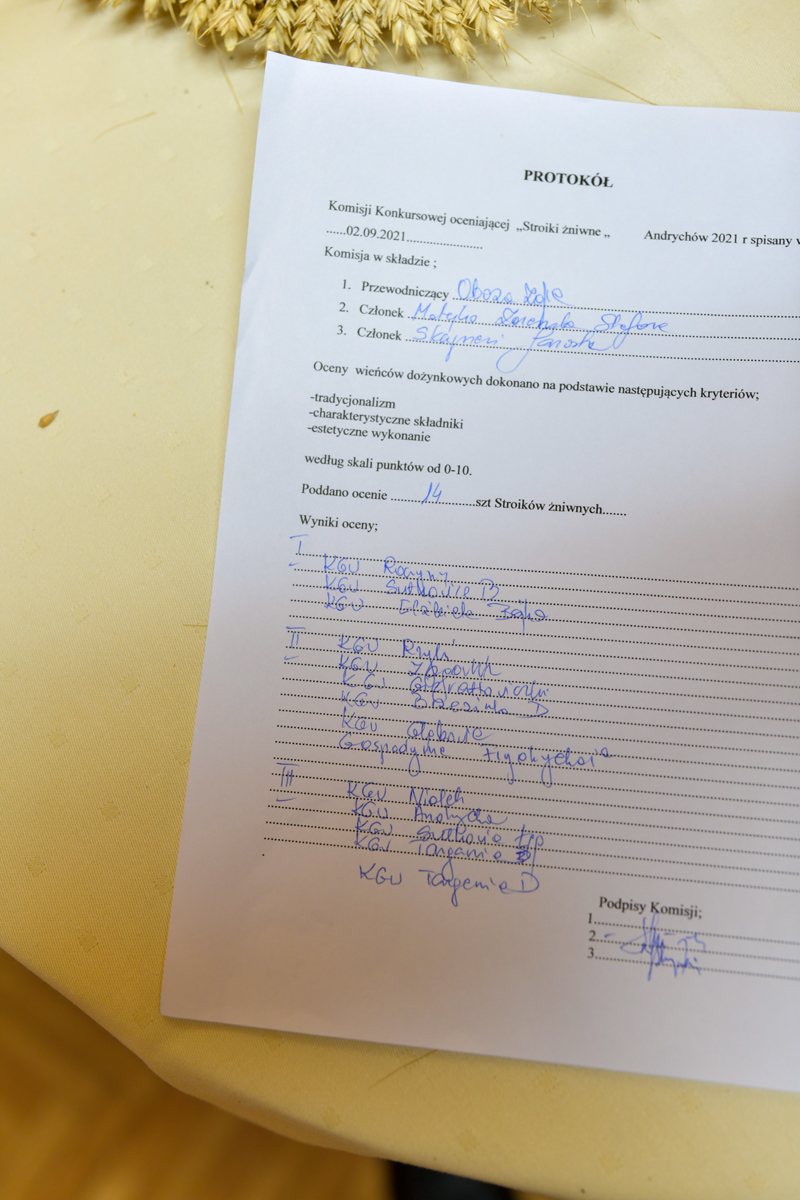 PROTOKÓŁ
Komisji Konkursowej oceniającej „Stroiki żniwne „ Andrychów 2021 r spisany w
......02.09.2021......................
Komisja w składzie ;
1. Przewodniczący Oboza
2. Członek Matejko Stefania
3. Członek
Oceny wieńców dożynkowych dokonano na podstawie następujących kryteriów;
-tradycjonalizm
-charakterystyczne składniki
-estetyczne wykonanie
według skali punktów od 0-10.
Poddano ocenie ..........14............szt Stroików żniwnych.......
Wyniki oceny;
I
KGW Roczyny
KGW Sułkowice B
KGW Elżbieta
II
KGW Rzyki
KGW Zagórnik
KGW
KGW Brzezinka D
KGW
Gospodynie Frydrychowic
III
KGW Nidek
KGW Andrychów
KGW Sułkowice
KGW Targanice
KGW Targanice D
Podpisy Komisji;
1
2
3